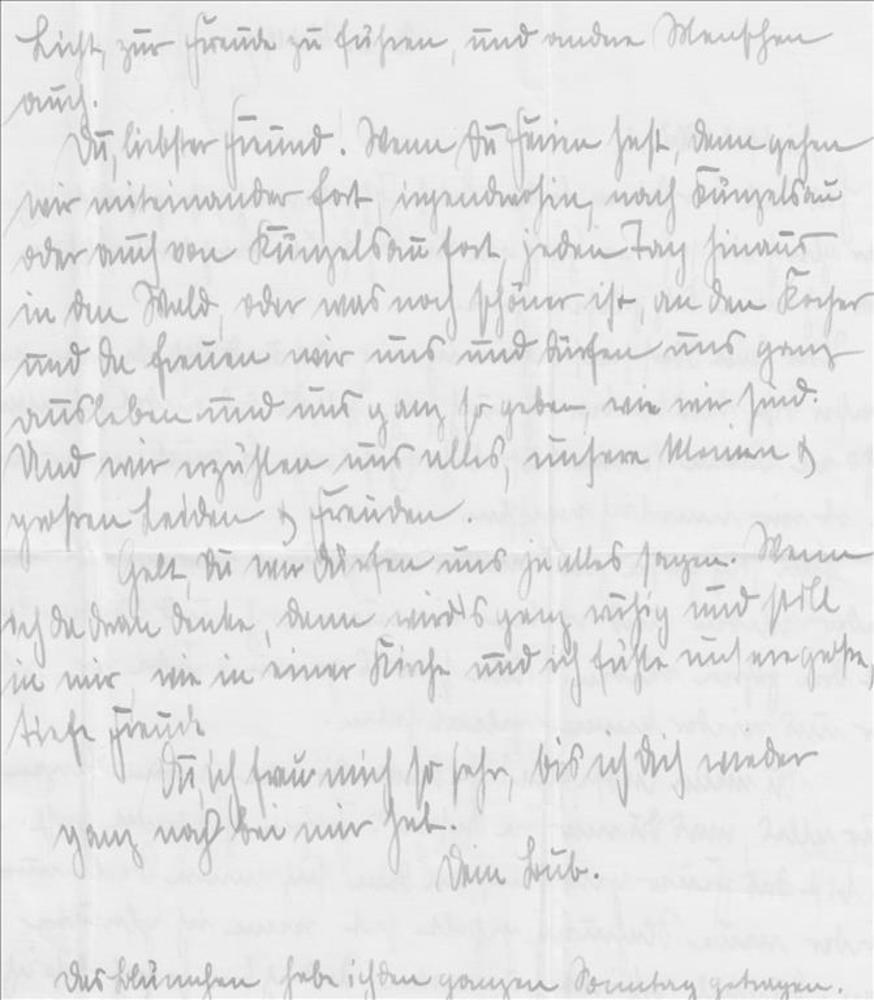 Licht, zur Freude zu führen, und andere Menschen
auch.
Du, liebster Freund. Wenn Du Ferien hast, dann gehen
wir miteinander fort, irgendwohin, nach Künzelsau
oder auch von Künzelsau fort, jeden Tag hinaus
in den Wald, oder was noch schöner ist, an den Kocher
und da freuen wir uns und dürfen uns ganz
ausleben und uns ganz so geben wie wir sind.
Und wir erzählen uns alles, unsere kleinen &
großen Leiden & Freuden.
Gelt, Du wir dürfen uns ja alles sagen. Wenn
ich da dran denke, dann wird's ganz ruhig und still
in mir, wie in einer Kirche und ich fühle nur eine große,
tiefe Freude
Du ich freu mich so sehr, bis ich Dich wieder
ganz nah bei mir hab.
Dein
Das Blümchen habe ich den ganzen Sonntag getragen.